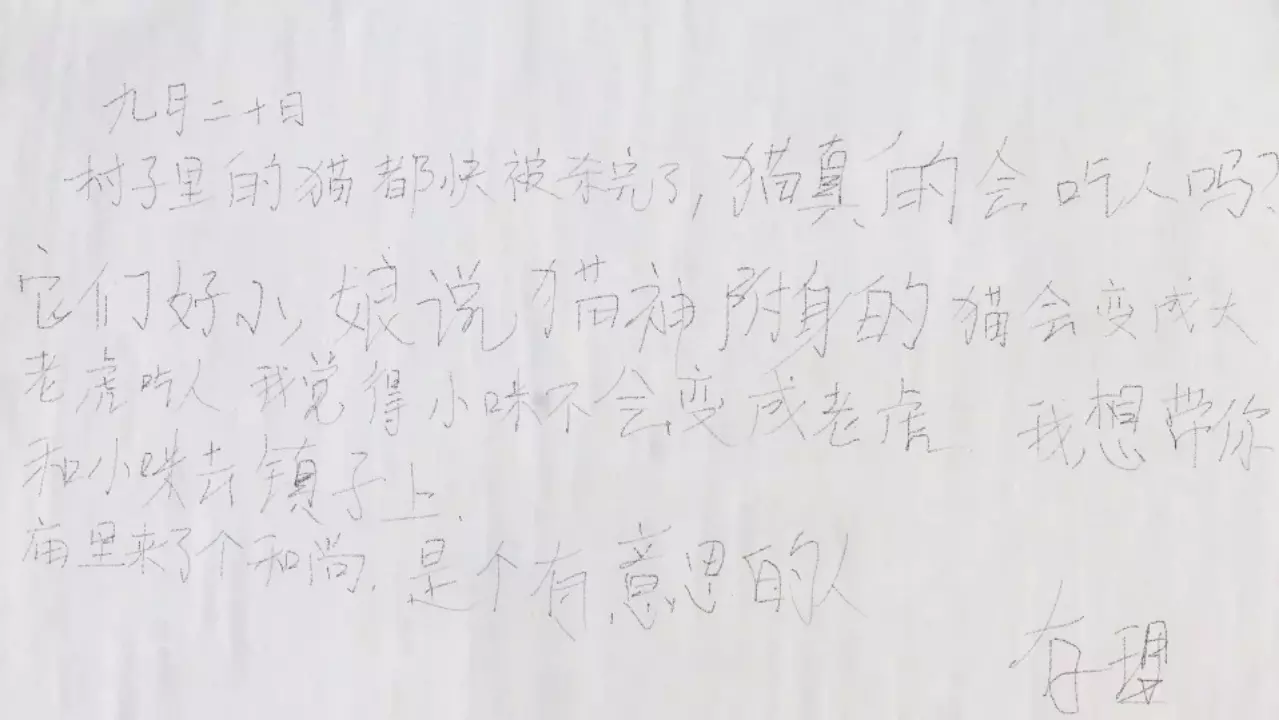 九月二十日
村子里的猫都快被杀完了,猫真的会吃人吗?
它们好小,娘说猫神附身的猫会变成大
老虎吃人 我觉得小咪不会变成老虎. 我想带你
和小咪去镇子上.
庙里来了个和尚.是个有意思的人
存理